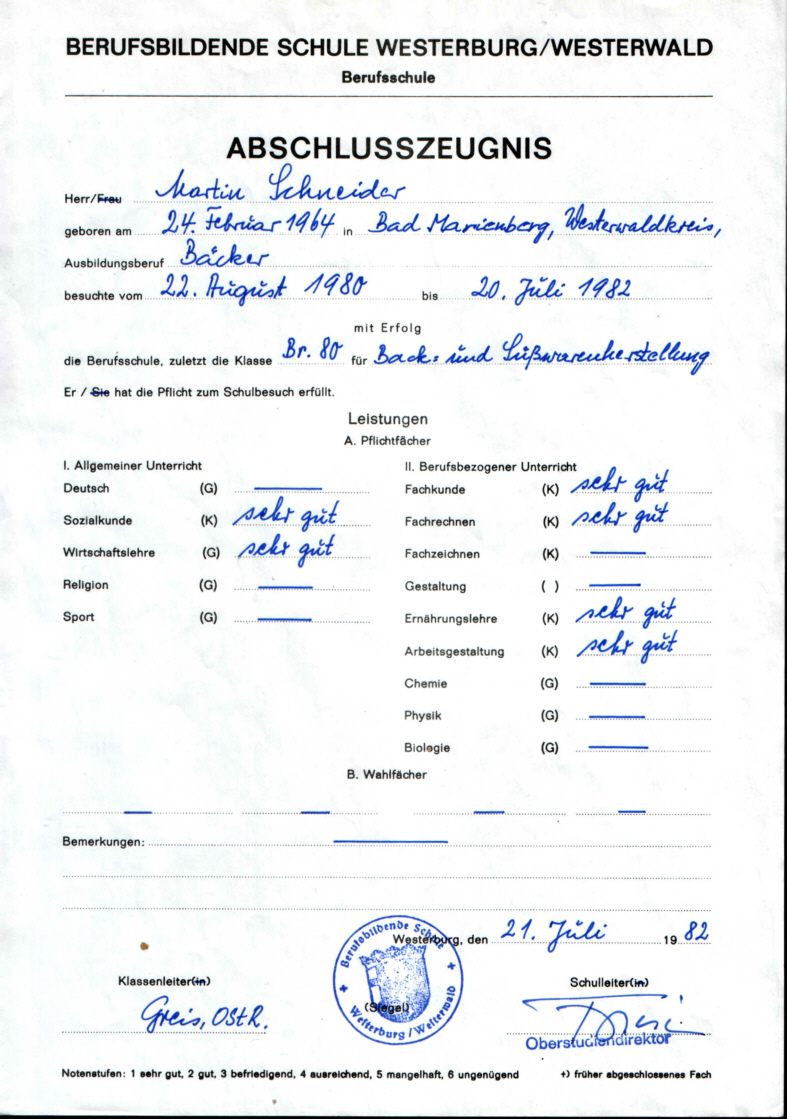 BERUFSBILDENDE SCHULE WESTERBURG/WESTERWALD
Berufsschule
ABSCHLUSSZEUGNIS
Herr/Frau Martin Schneider
geboren am 24. Februar 1964 in Bad Marienberg, Westerwaldkreis,
Ausbildungsberuf Bäcker
besuchte vom 22. August 1980 bis 20. Juli 1982
mit Erfolg
die Berufsschule, zuletzt die Klasse Br. 80 für Back- und Süßwarenherstellung
Er / Sie hat die Pflicht zum Schulbesuch erfüllt.
Leistungen
A. Pflichtfächer
I. Allgemeiner Unterricht
Deutsch (G) —
Sozialkunde (K) sehr gut
Wirtschaftslehre (G) sehr gut
Religion (G) —
Sport (G) —
II. Berufsbezogener Unterricht
Fachkunde (K) sehr gut
Fachrechnen (K) sehr gut
Fachzeichnen (K) —
Gestaltung ( ) —
Ernährungslehre (K) sehr gut
Arbeitsgestaltung (K) sehr gut
Chemie (G) —
Physik (G) —
Biologie (G) —
B. Wahlfächer
— — — —
Bemerkungen: —
Westerburg, den 21. Juli 1982
Berufsbildende Schule
Westerburg/Westerwald
(Siegel)
Klassenleiter(in)
Greis, OStR.
Schulleiter(in)
Oberstudiendirektor
Notenstufen: 1 sehr gut, 2 gut, 3 befriedigend, 4 ausreichend, 5 mangelhaft, 6 ungenügend +) früher abgeschlossenes Fach